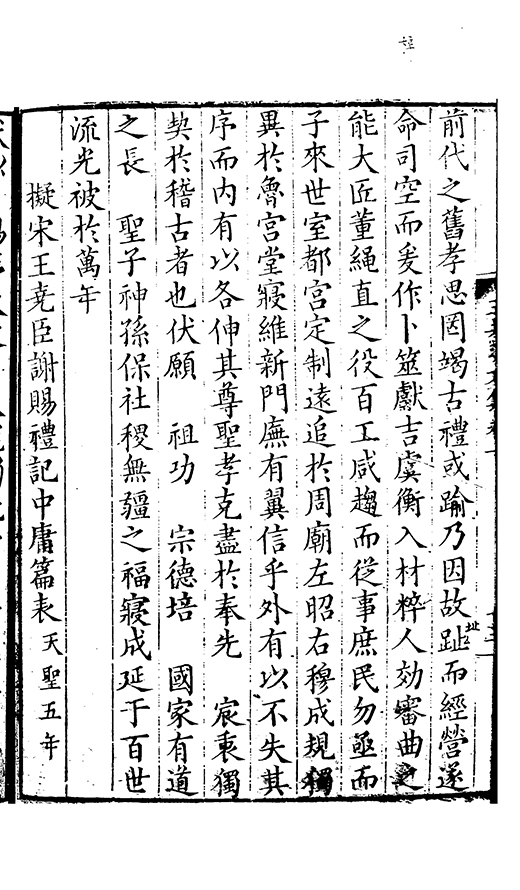 前代之舊孝思罔竭古禮或踰乃因故趾而經營遂
命司空而爰作卜筮獻吉虞衡入材粹人効審曲之
能大匠董繩直之役百工咸趨而從事庶民勿亟而
子來世室都宮定制遠追於周廟左昭右穆成規獨
異於魯宮堂寢維新門廡有翼信乎外有以不失其
序而內有以各伸其尊聖孝克盡於奉先　宸衷獨
契於稽古者也伏願　祖功　宗德培　國家有道
之長　聖子神孫保社稷無疆之福寢成延于百世
流光被於萬年
擬宋王堯臣謝賜禮記中庸篇表天聖五年